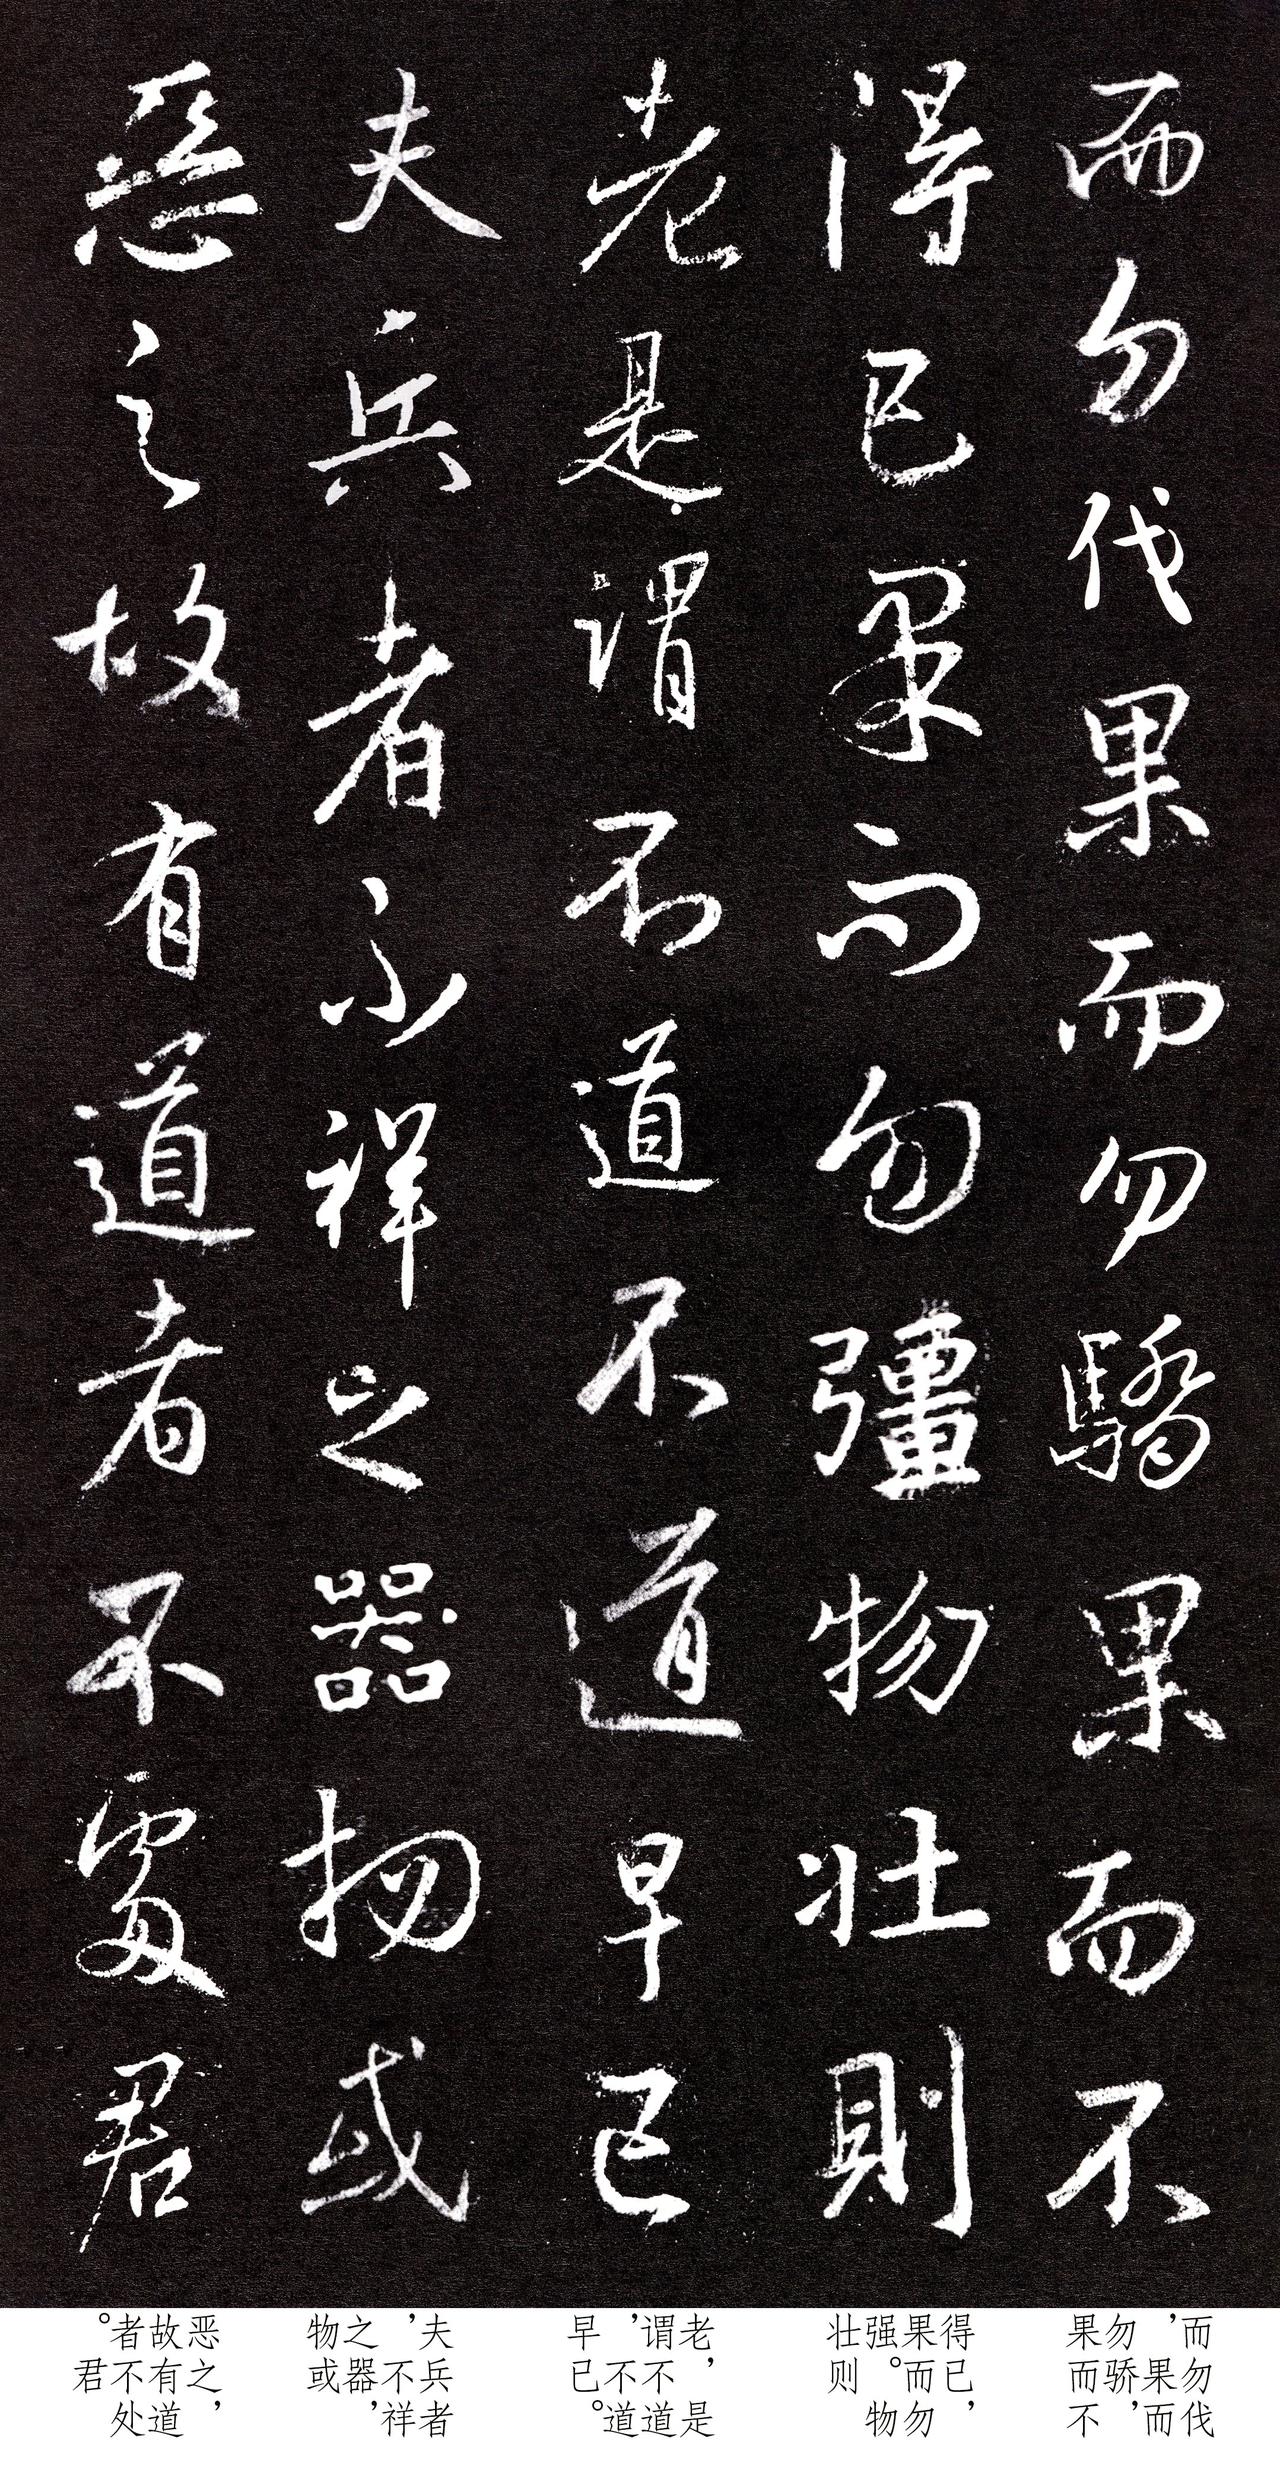 而勿伐果而勿驕果而不
得已果而勿彊物壯則
老是謂不道不道早已
夫兵者不祥之器物或
惡之故有道者不處君
而勿伐
，果而
勿骄，
果而不
得已，
果而勿
强。物
壮则
老，是
谓不道
，不道
早已。
夫兵者
，不祥
之器，
物或
恶之，
故有道
者不处
。君